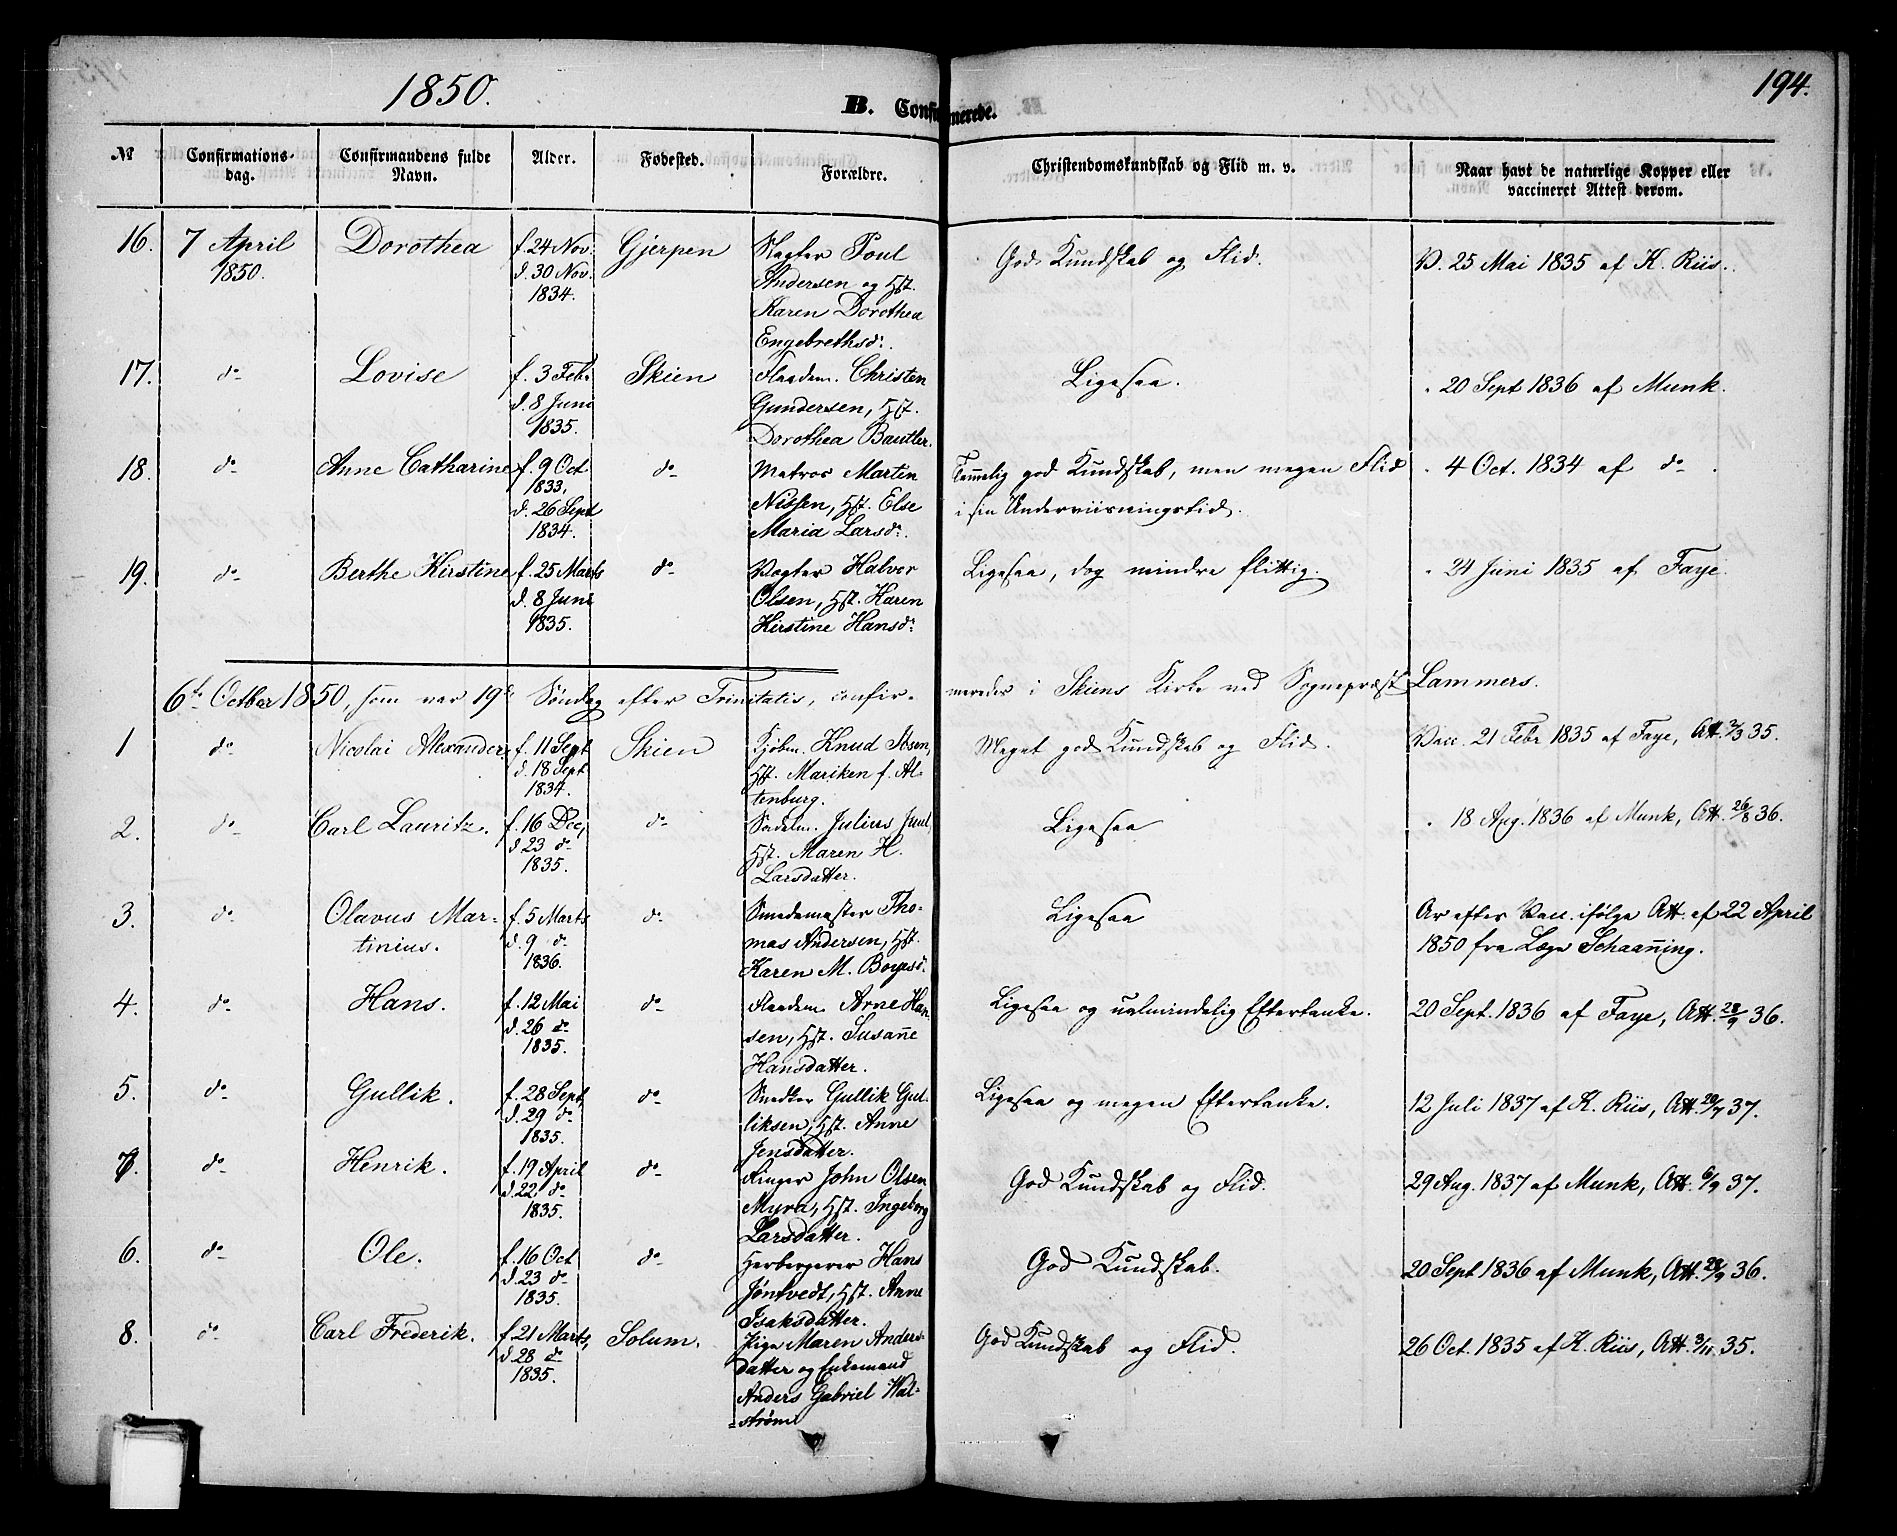 1850.
B. Confirmerede.
194.
№ Confirmations-dag. Confirmandens fulde Navn. Alder. Fødested. Forældre. Christendomskundskab og Flid m. v. Naar havt de naturlige Kopper eller vaccineret Attest derom.
16. 7 April Dorothea f. 24 Nov. Gjerpen Poul God Kundskab og Flid. V. 25 Mai 1835 af K. Riis.
1850. d. 30 Nov. Andersen og Hst.
1834. Karen Dorothea
Engebrethsd:
17. do Lovise f. 3 Febr Skien Flaadem. Christen Ligesaa. " 20 Sept 1836 af Munk.
d. 8 Juni Gundersen, Hst.
1835. Dorothea Bautler.
18. do Anne Catharine f. 9 Oct do Matros Martin Temmelig god Kundskab, men megen Flid " 4 Oct. 1834 af do
1833, Nissen, Hst. Else i sin Underviisningstid.
d. 26 Sept Maria Larsd:
1834.
19. do Berthe Kirstine f. 25 Marts do Vægter Halvor Ligesaa, dog mindre flittig. " 24 Juni 1835 af Faye.
d. 8 Juni Olsen, Hst. Karen
1835. Kirstine Hansd:
6te Octbor 1850, som var 19de Søndag efter Trinitatis, confirmeredes i Skiens Kirke ved Sognepræst Lammers.
1 do Nicolai Alexander. f. 11 Sept Skien Kjøbm. Knud Ibsen, Meget god Kundskab og Flid. Vacc. 21 Febr 1835 af Faye, Att. 2/3 35.
d. 18 Sept Hst. Mariken f. Al-
1834. tenburg.
2. do Carl Lauritz. f. 16 Dec, do Sadelm. Julius Juul, Ligesaa " 18 Aug. 1836 af Munk, Att. 26/8 36.
d. 23 do Hst. Maren H.
1835. Larsdatter.
3. do Olavus Mar- f. 5 Marts do Smedemester Tho- Ligesaa Ar efter Vacc. ifølge Att. af 22 April
tinius. d. 9 do mas Andersen, Hst. 1850 fra Læge Schaanning.
1836. Karen M. Boyesd:
4. do Hans. f. 12 Mai do Flaadem. Arne Han- Ligesaa og ualmindelig Eftertanke. 20 Sept. 1836 af Faye, Att. 28/9 36.
d. 26 do sen, Hst. Susanne
1835. Hansdatter.
5. do Gullik. f. 28 Sept, do Snedker Gullik Gul- Ligesaa og megen Eftertanke. 12 Juli 1837 af K. Riis, Att. 20/7 37.
d. 29 do liksen, Hst. Anne
1835. Jensdatter.
7. do Henrik. f. 19 April do Ringer John Olsen God Kundskab og Flid. 29 Aug. 1837 af Munk, Att. 6/9 37.
d. 22 do Myra, Hst. Ingeborg
1835. Larsdatter.
6. do Ole. f. 16 Oct do Herbergerer Hans God Kundskab. 20 Sept 1836 af Munk, Att. 28/9 36.
d. 23 do Jøntvedt, Hst. Anne
1835. Isaksdatter.
8. do Carl Frederik. f. 21 Marts, Solum. Pige Maren Anders- God Kundskab og Flid. 26 Oct. 1835 af K. Riis, Att. 3/11 35.
d. 28 do datter og Enkemand
1835. Anders Gabriel Wal-
=strøm